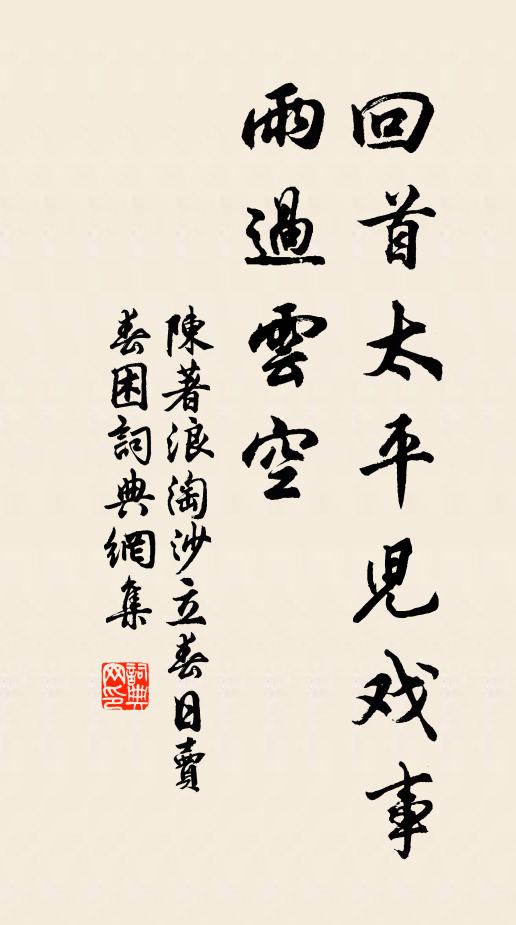 回首太平児戏事
雨過雲空
陳著浪淘沙立春日賣
春困詞典網集
詞典
网印